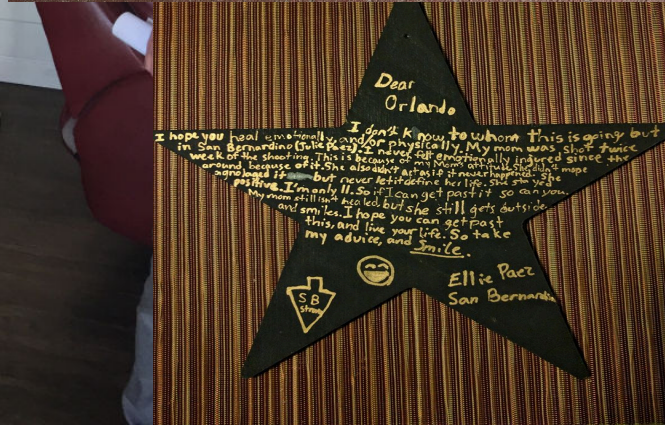 Dear
Orlando
I don't know to whom this is going but
I hope you heal emotionally and/or physically. My mom was shot twice
in San Bernardino (Julie Paez). I never felt emotionally injured since the
week of the shooting. This is because of my Mom's attitude. She didn't mope
around because of it. She also didn't act as if it never happened. She
but never let it define her life. She stayed
positive. I'm only 11. So if I can get past it so can you.
My mom still isn't healed, but she still gets outside
and smiles. I hope you can get past
this, and live your life. So take
my advice, and Smile.
Ellie Paez
San Bernardino
SB
Strong